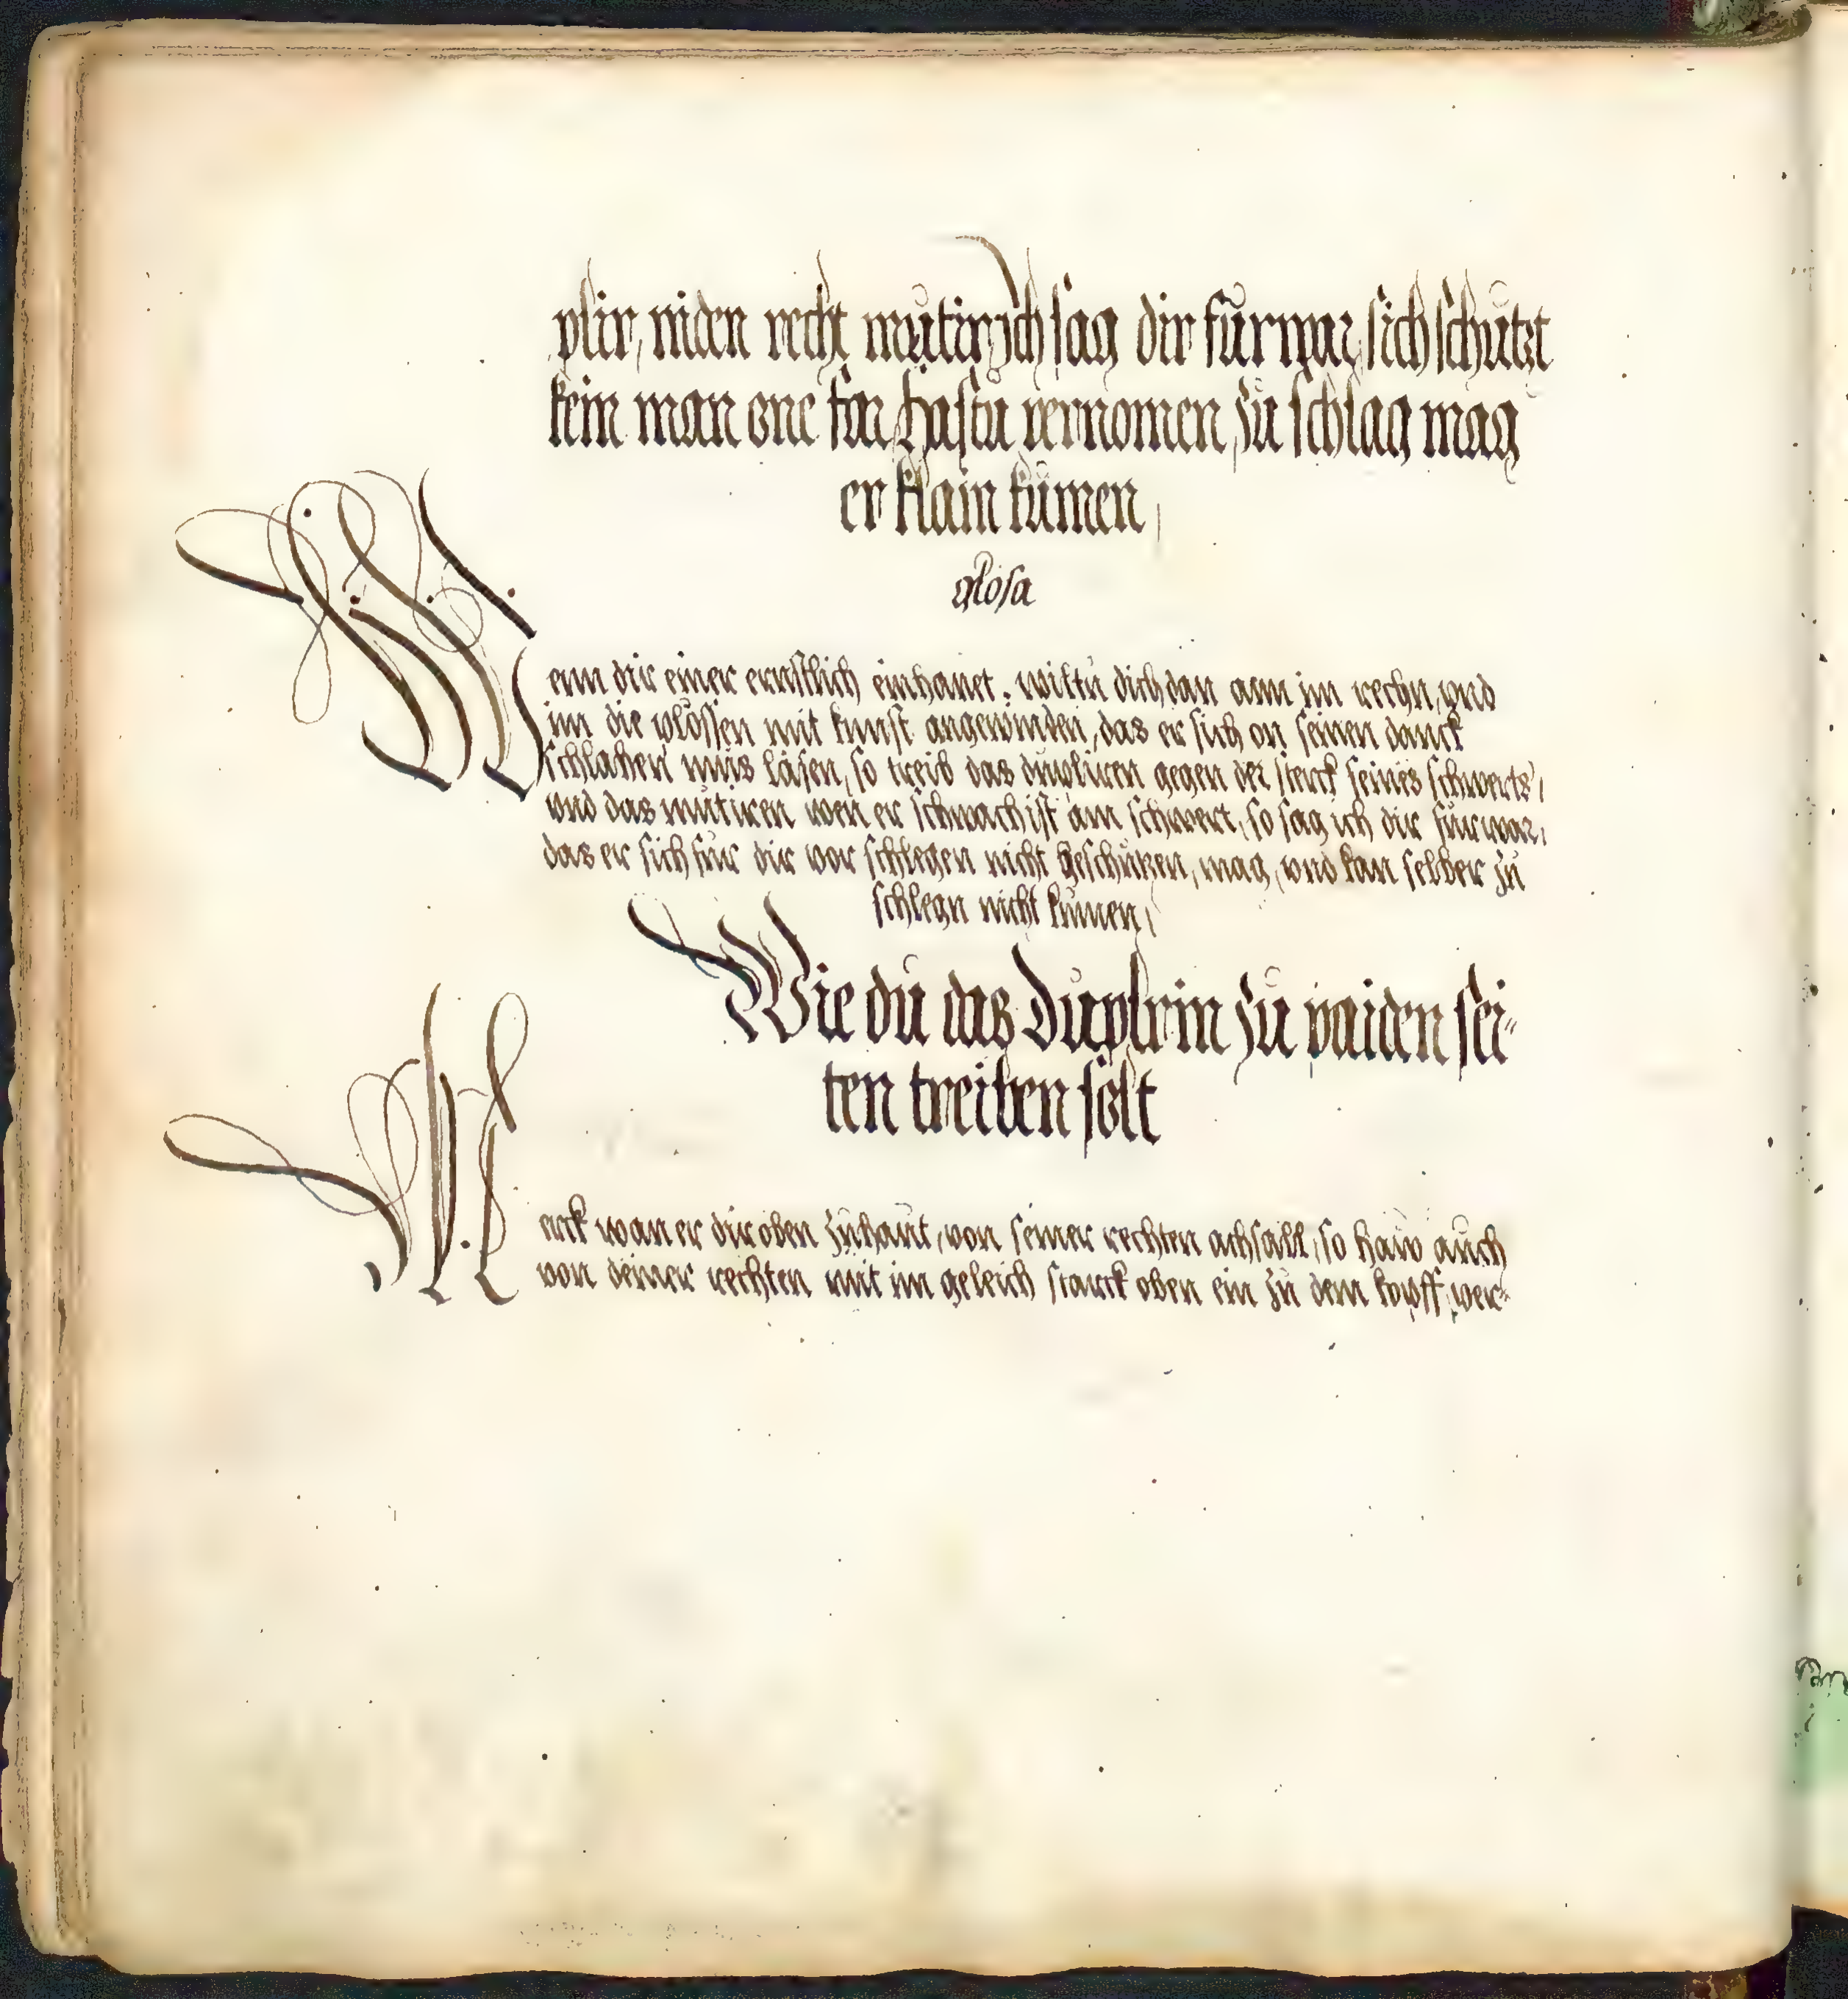 plir, niden recht mutir, Ich sag dir fürwar, sich schützt
kein man one far, Hastu vernomen, zu schlag mag
er klain kumen,
glosa
Wenn dir einer ernstlich einhauet. wiltu dich dan ann im rechn, vnd
im die plössen mit kunst angewinden, das er sich on seinen danck
schlahen mus lasen, so treib das dupliren gegen der sterck seines schwerts,
vnd das mutiren wen er schwach ist am schwert, so sag ich dir fürwar,
das er sich für dir vor schlegen nicht geschützen, mag, vnd kan selber zu
schlegn nicht kumen,
Wie du das Duplirin zu paiden sei-
ten treiben solt
Merck wan er dir oben zuhaut, von seiner rechten achsall, so haw auch
von deiner rechten mit im geleich starck oben ein zu dem kopff, wer-